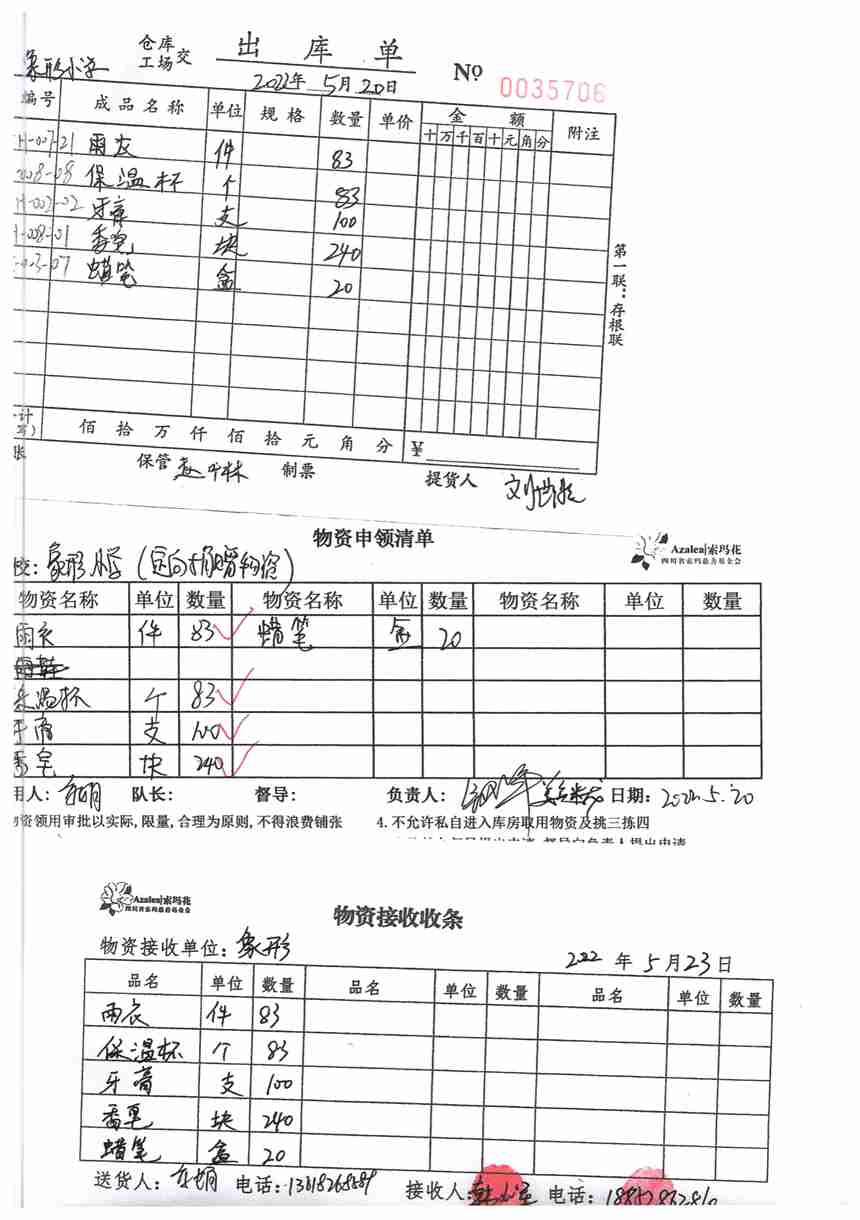 仓库
工场 交 出库单
象形小学 2022年 5月 20日 No 0035706
编号 成品名称 单位 规格 数量 单价 金额 附注
十 万 千 百 十 元 角 分
雨衣 件 83
008-08 保温杯 个 83
02 牙膏 支 100
008-01 香皂 块 240
07 蜡笔 盒 20
第一联：存根联
佰 拾 万 仟 佰 拾 元 角 分 ¥
保管 制票 提货人
物资申领清单 Azalea|索玛花
四川省索玛慈善基金会
校：象形小学（定向捐赠物资）
物资名称 单位 数量 物资名称 单位 数量 物资名称 单位 数量
雨衣 件 83 蜡笔 盒 20
保温杯 个 83
牙膏 支 100
香皂 块 240
用人： 队长： 督导： 负责人： 日期：2022.5.20
物资领用审批以实际，限量，合理为原则，不得浪费铺张 4.不允许私自进入库房取用物资及挑三拣四
Azalea|索玛花
四川省索玛慈善基金会
物资接收收条
物资接收单位：象形 2022 年 5 月 23 日
品名 单位 数量 品名 单位 数量 品名 单位 数量
雨衣 件 83
保温杯 个 83
牙膏 支 100
香皂 块 240
蜡笔 盒 20
送货人： 电话： 接收人： 电话：